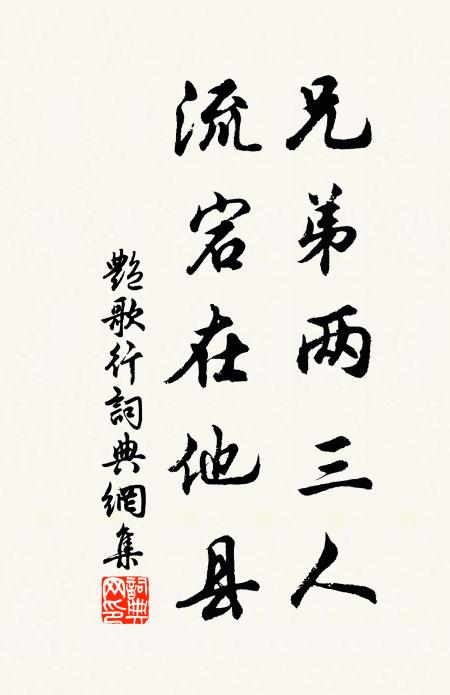 兄弟两三人
流宕在他县
艷歌行詞典網集
詞典网印